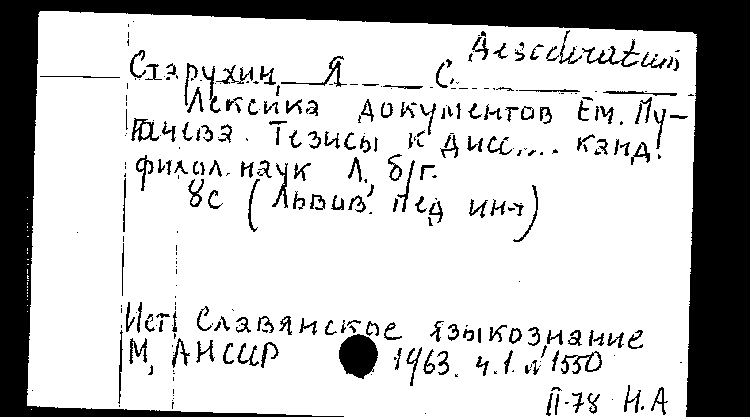 Desideratum
Старухин, Я С.
Лексика документов Ем. Пу-
гачева. Тезисы к дисс.... канд.
филол. наук Л., б/г.
8с (Львив. пед ин-т)
Ист. Славянское языкознание
М, АНСССР 1963. ч.1. № 1550
П-78 Н.А